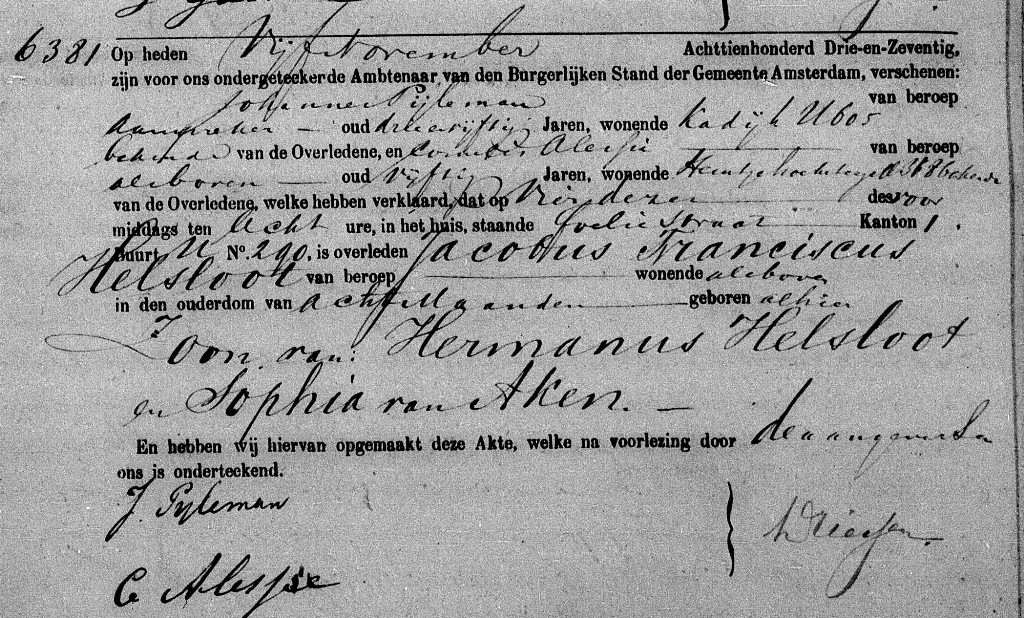 6381 Op heden Vijf November Achttienhonderd Drie-en-Zeventig,
zijn voor ons ondergeteekende Ambtenaar van den Burgerlijken Stand der Gemeente Amsterdam, verschenen:
Johannes Pijleman van beroep
Aanspreker — oud drieenvijftig Jaren, wonende Kadijk U 605
bekende van de Overledene, en Cornelis Alespie van beroep
als boven — oud vijftig Jaren, wonende bekende
van de Overledene, welke hebben verklaard, dat op Vier dezer des voor
middags ten Acht ure, in het huis, staande Foeliestraat Kanton 1.
Buurt No. 290, is overleden Jacobus Franciscus
Helsloot van beroep — wonende als boven
in den ouderdom van acht Maanden — geboren alhier
Zoon van: Hermanus Helsloot
en Sophia van Aken. —
En hebben wij hiervan opgemaakt deze Akte, welke na voorlezing door de aangevers en
ons is onderteekend.
J. Pyleman
C Alespie